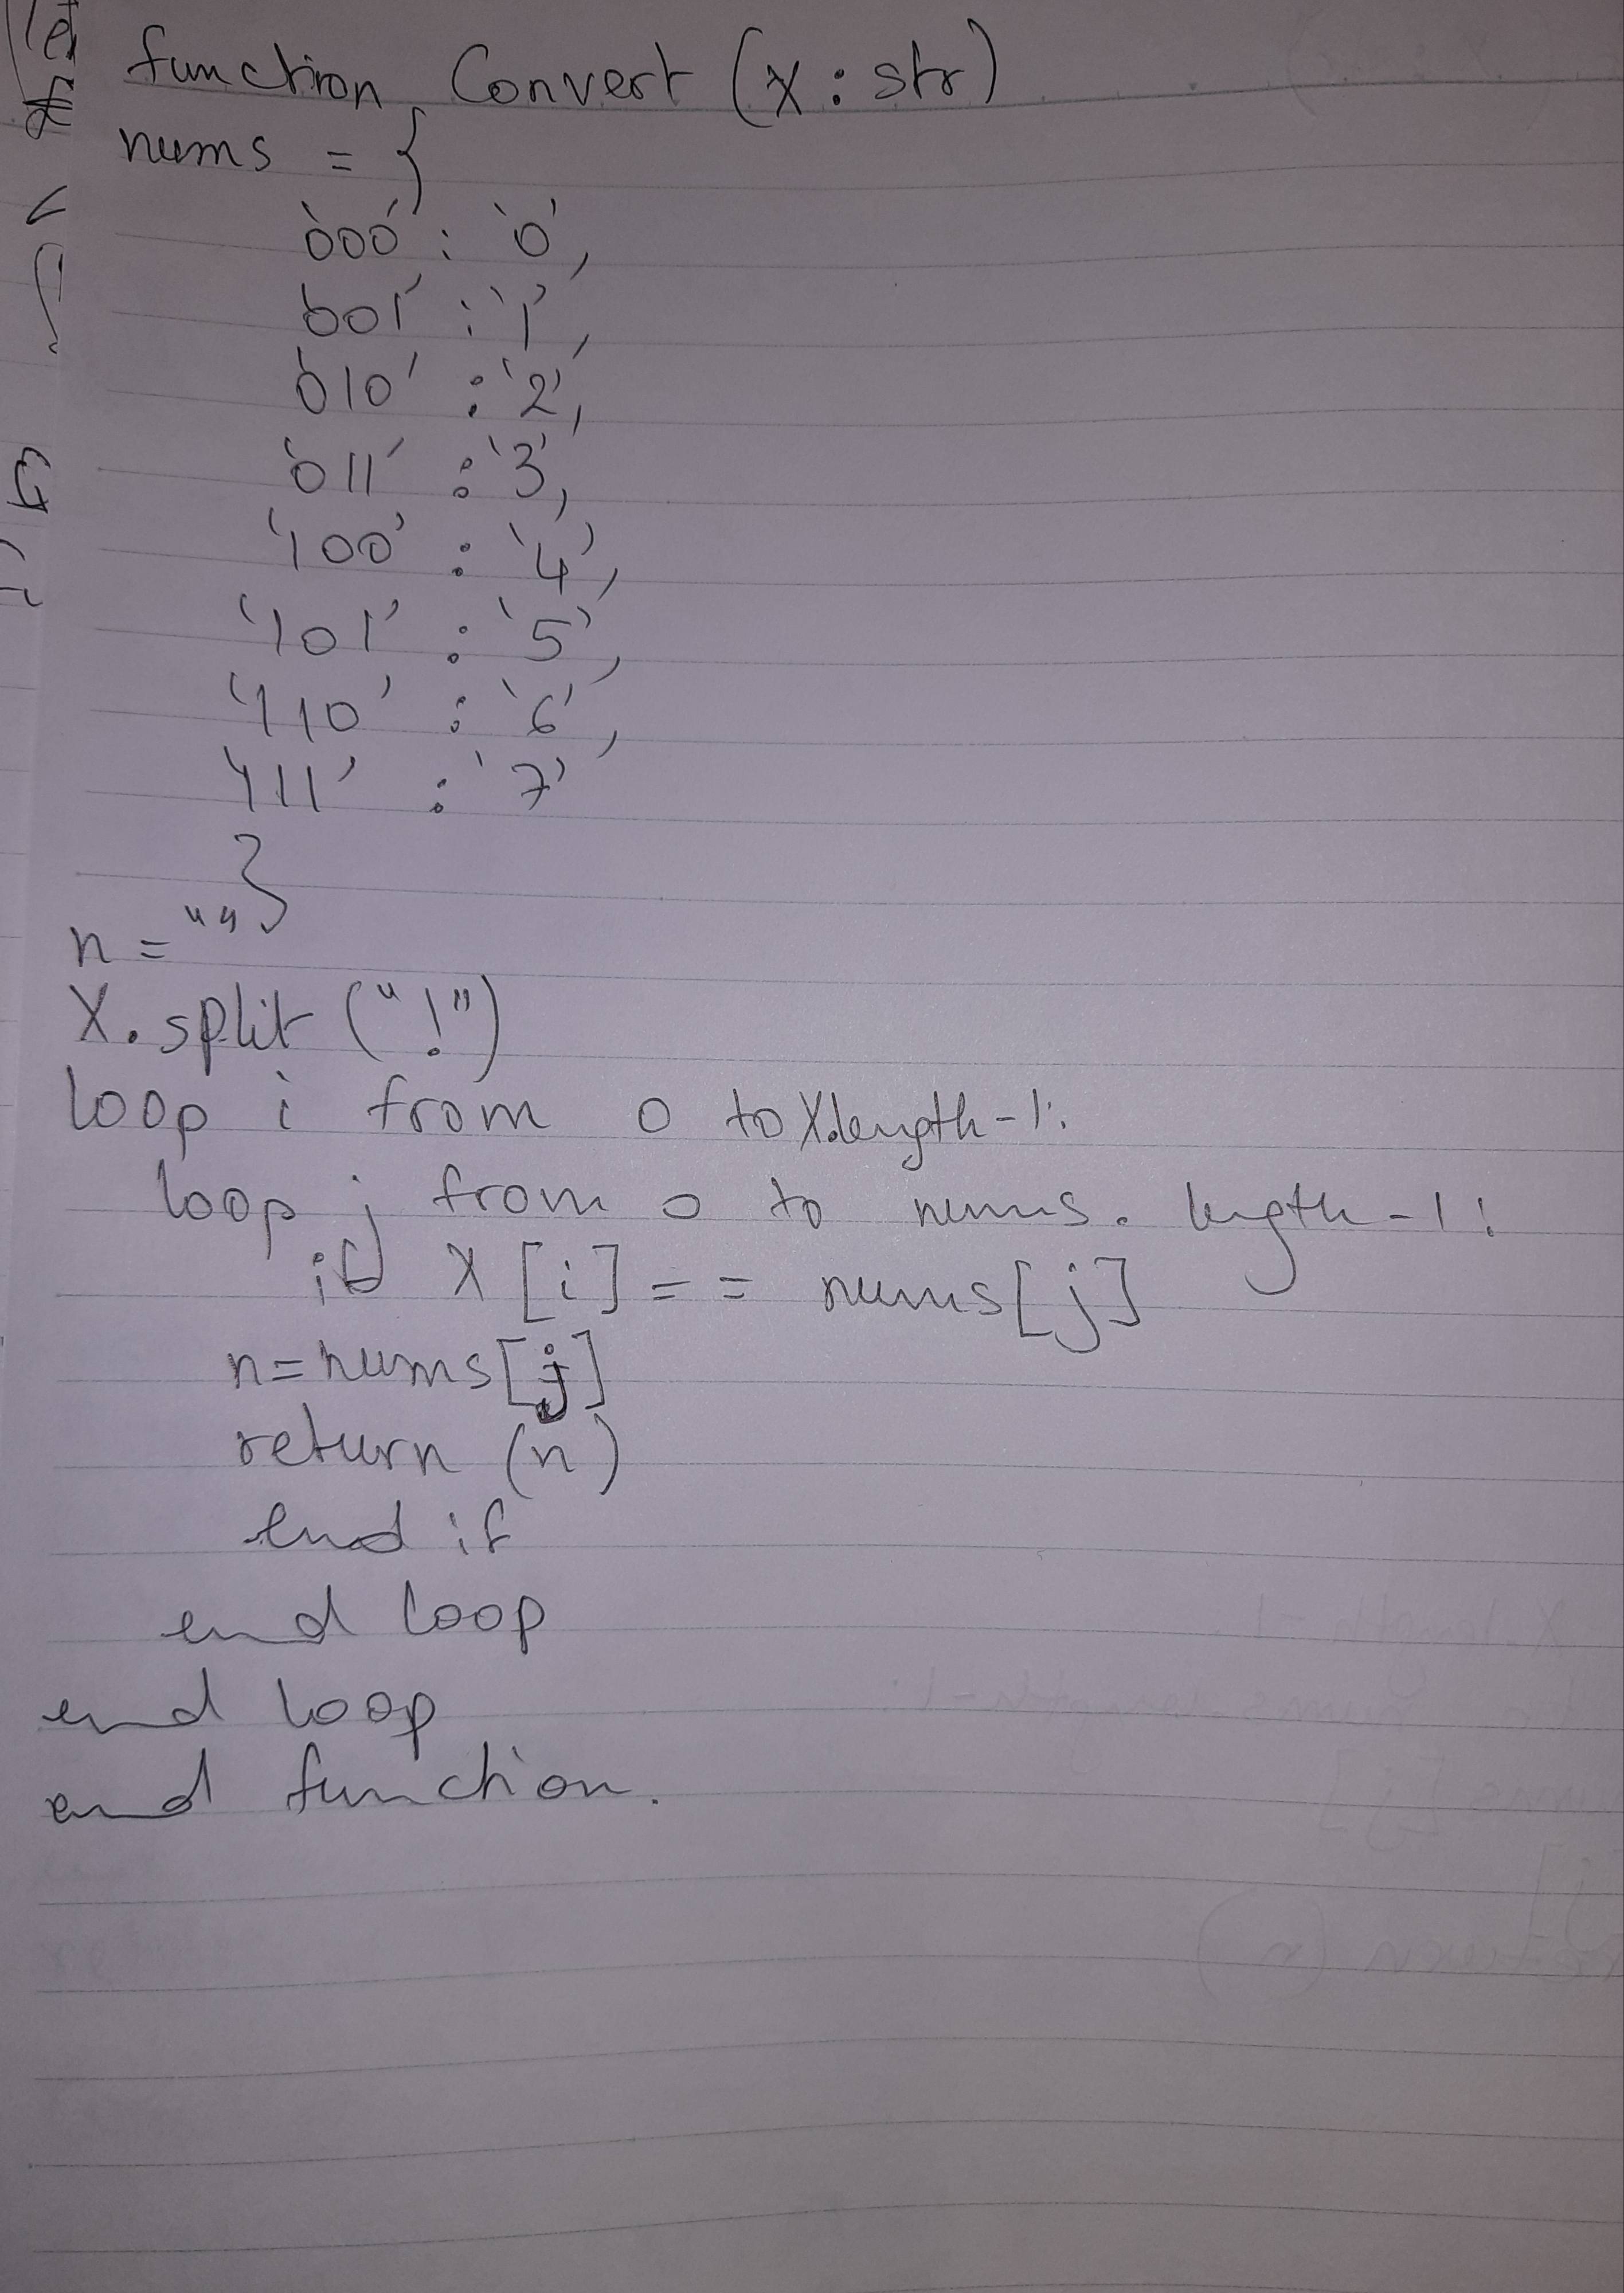 function Convert (x : str)
nums = {
'000' : '0',
'001' : '1',
'010' : '2',
'011' : '3,
'100' : '4',
'101' : '5',
'110' : '6',
'111' : '7'
}
n = ""
X.split ("!")
loop i from 0 to X.length-1:
loop j from 0 to nums.length-1:
if X[i] == nums[j]
n=nums[j]
return (n)
end if
end loop
end loop
end function.